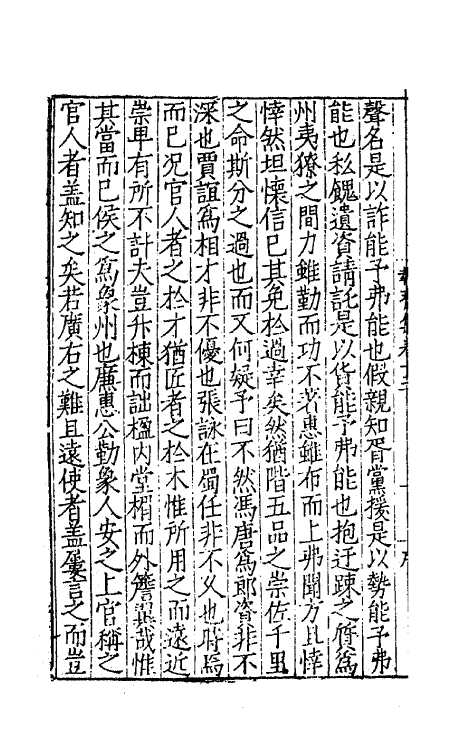 聲名是以詐能予弗能也假親知胥黨援是以勢能予弗
能也私餽遺資請託是以貨能予弗能也抱迂踈之爲
州夷獠之間力雖勤而功不著惠雖布而上弗聞方且悻
悻然坦懷信已其免於過幸矣然猶階五品之崇佐千里
之命斯分之過也而又何疑予曰不然馮唐爲郎資非不
深也賈誼爲相才非不優也張詠在蜀任非不乆也時焉
而已况官人者之於才猶匠者之於木惟所用之而遠近
崇卑有所不計夫豈升棟而詘楹内堂楣而外簷翼哉惟
其當而已侯之爲象州也廉惠公勤象人安之上官稱之
官人者盖知之矣若廣右之難且遠使者盖屢言之而豈